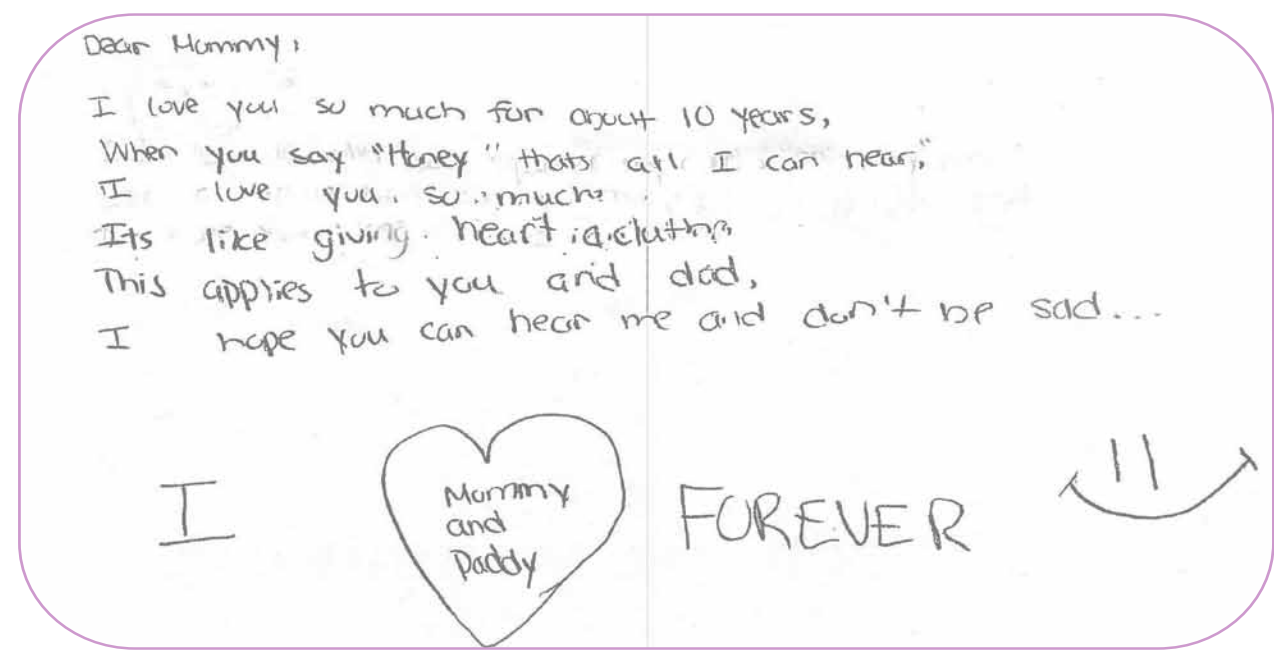 Dear Mommy,
I love you so much for about 10 years,
When you say "Honey" thats all I can hear,
I love you so much
Its like giving heart a clutch
This applies to you and dad,
I hope you can hear me and don't be sad...
I
Mommy
and
Daddy
FOREVER